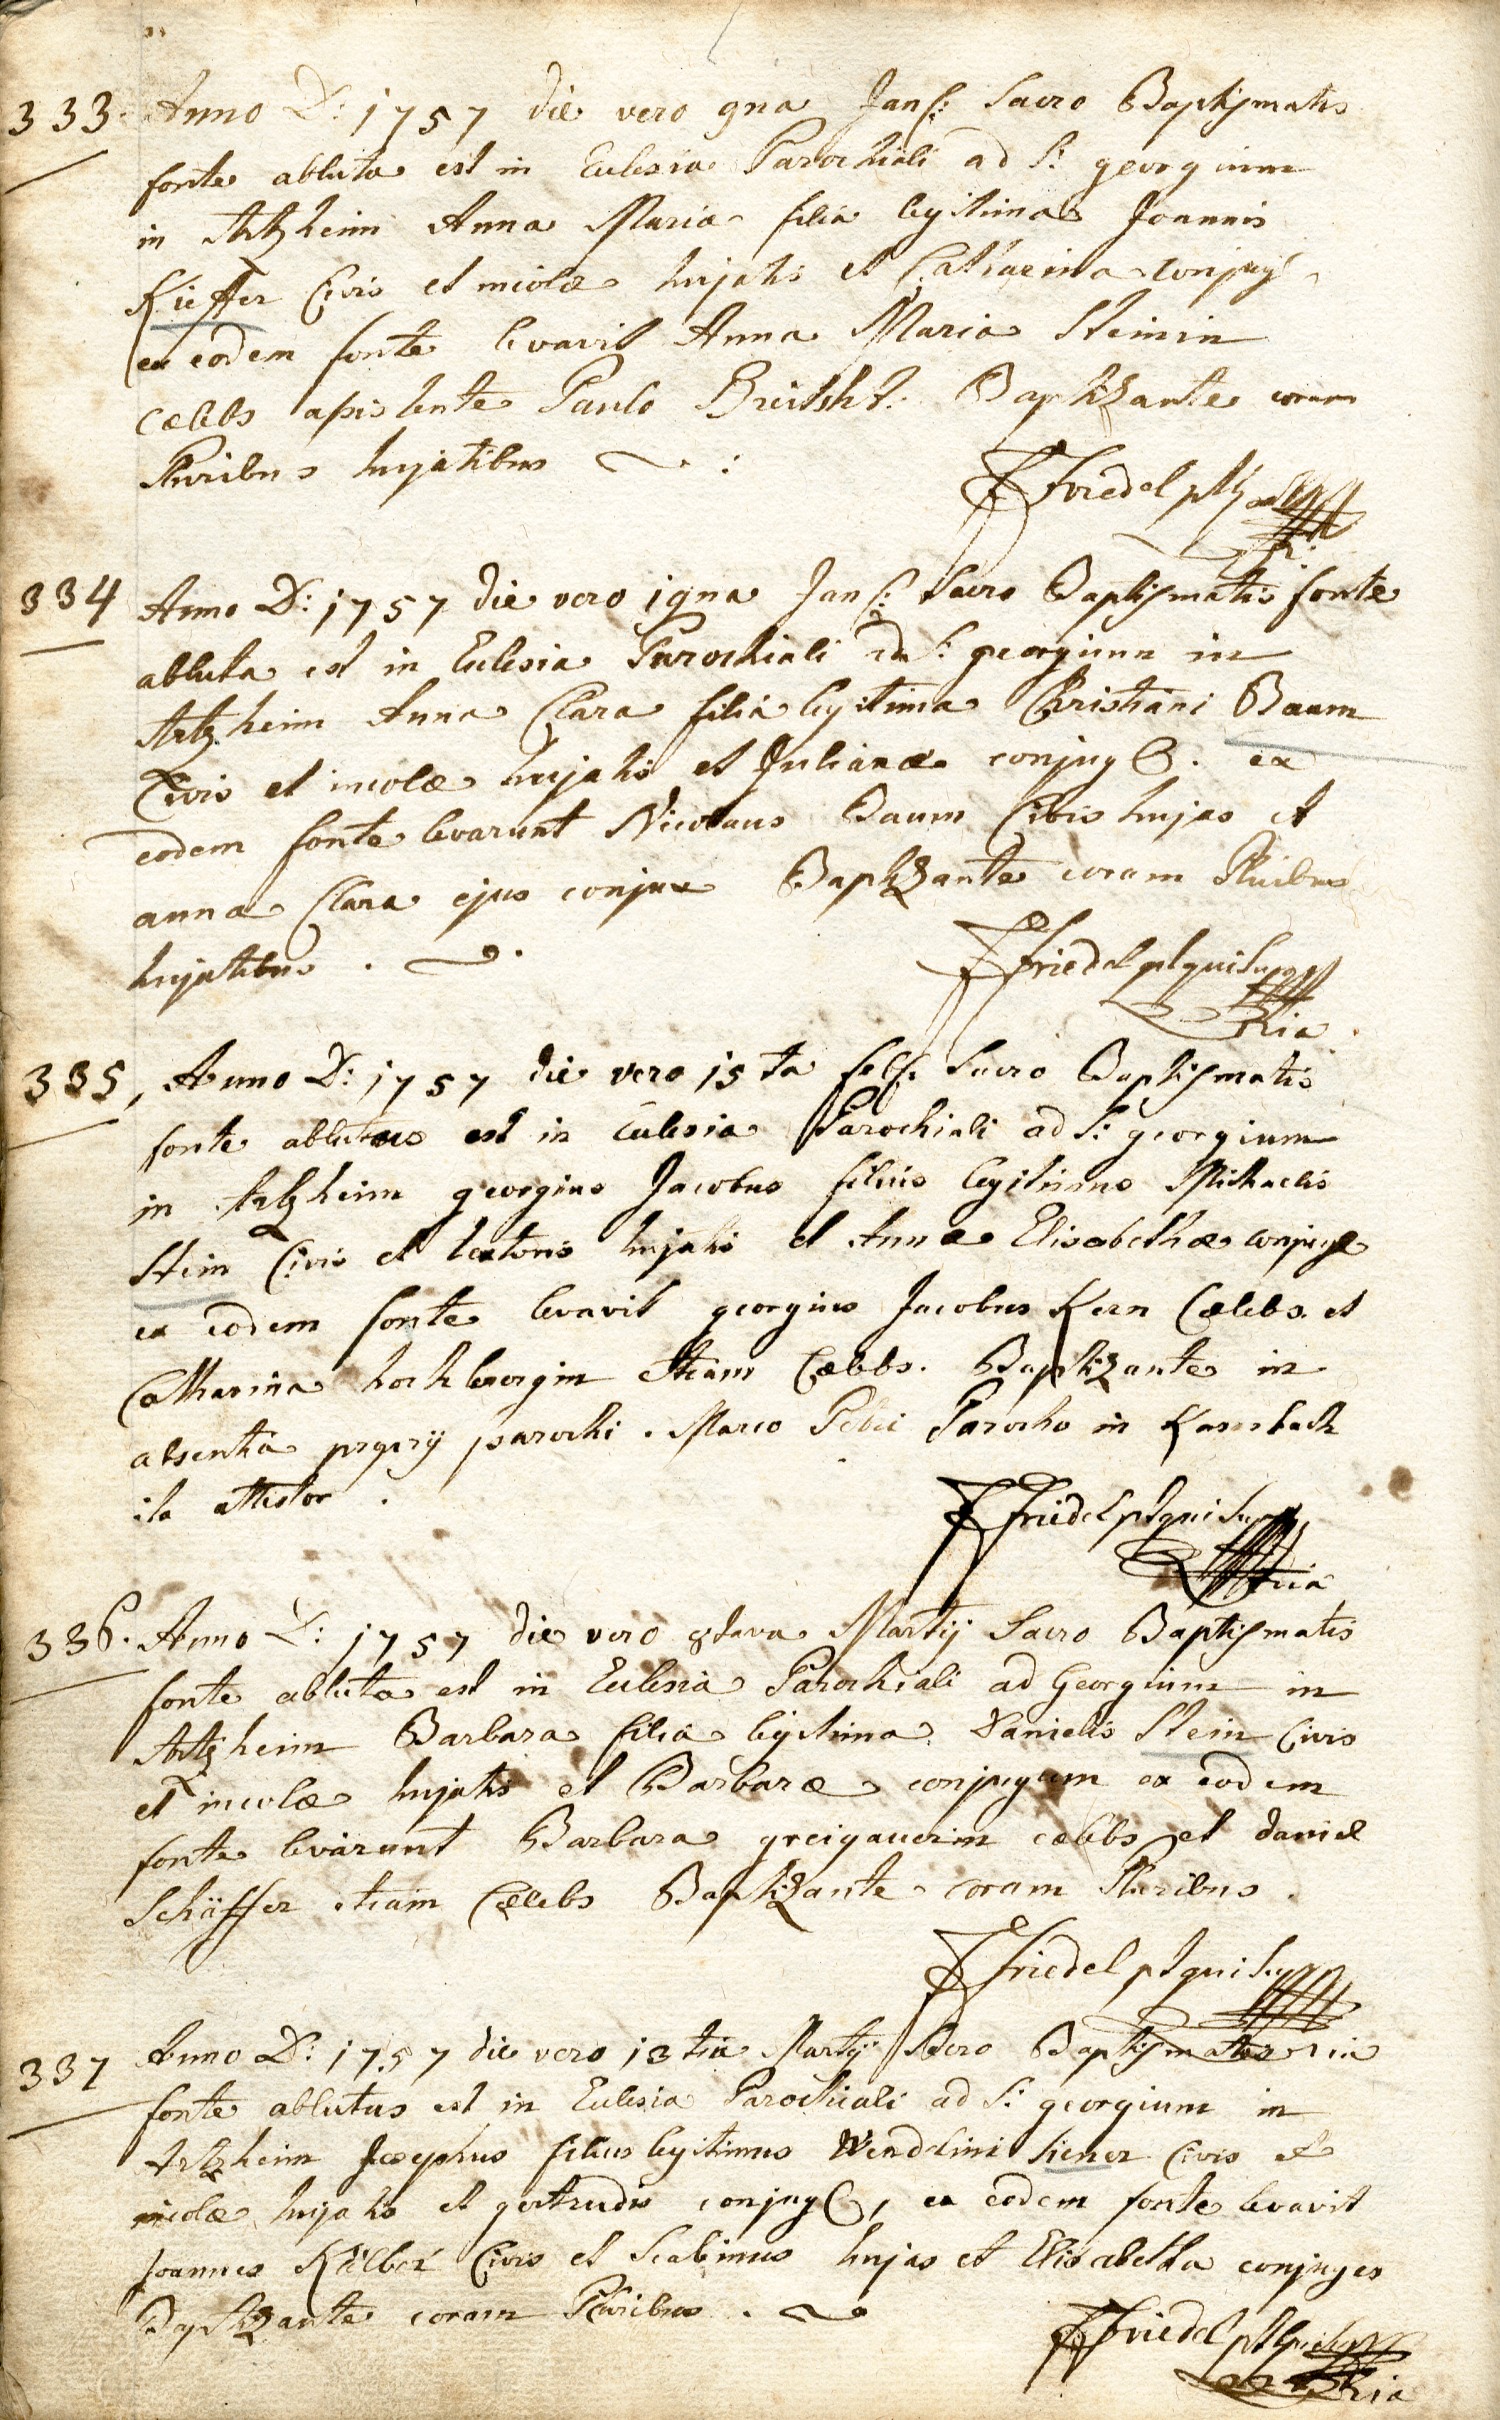 333. Anno D: 1757 die vero 9na Jan: Sacro Baptismatis
fonte abluta est in Eclesia Parochiali ad S: georgium
in Artzheim Anna Maria filia legitima Joannis
Kieffer Civis et incolæ hujatis et Catharina conjug
ex eodem fonte levavit Anna Maria Steinin
cælebs assistente Paulo Baptizante coram
Pluribus hujatibus
Friedel
334 Anno D: 1757 die vero 19na Jan: Sacro Baptismatis fonte
abluta est in Eclesia Parochiali ad S: georgium in
Artzheim Anna Clara filia legitima Christiani Baum
Civis et incolæ hujatis et Julianæ conjug. ex
eodem fonte levarunt Nicolaus Baum Civis hujas et
anna Clara ejus conjux Baptizante coram Pluribus
hujatibus.
Friedel
ria
335, Anno D: 1757 die vero 15ta feb: Sacro Baptismatis
fonte ablutus est in Eclesia Parochiali ad S: georgium
in Artzheim georgius Jacobus filius legitimus Michaelis
Stein Civis et textoris hujatis et Annæ Elisabethæ conjug
ex eodem fonte levavit georgius Jacobus Kern Cælebs. et
Catharina hochbergin etiam Cælebs. Baptizante in
absentia proprij parochi. Marco Parocho in
ita attestor.
Friedel
ria
336. Anno D: 1757 die vero 8tava Martij Sacro Baptismatis
fonte abluta est in Eclesia Parochiali ad Georgium in
Artzheim Barbara filia legitima Danielis Stein Civis
et incolæ hujatis et Barbaræ conjugum ex eodem
fonte levarunt Barbara greigauerin cælebs et daniel
Schäffer etiam Cælebs Baptizante coram Pluribus.
Friedel
ria
337 Anno D: 1757 die vero 13tia Martij Sacro Baptismatis
fonte ablutus est in Eclesia Parochiali ad S: georgium in
Artzheim Josephus filius legitimus Wendelini Siener Civis et
incolæ hujatis et gertrudis conjug, ex eodem fonte levavit
Joannes Civis et Scabinus hujas et Elisabetha conjuges
Baptizante coram Pluribus.
Friedel
ria